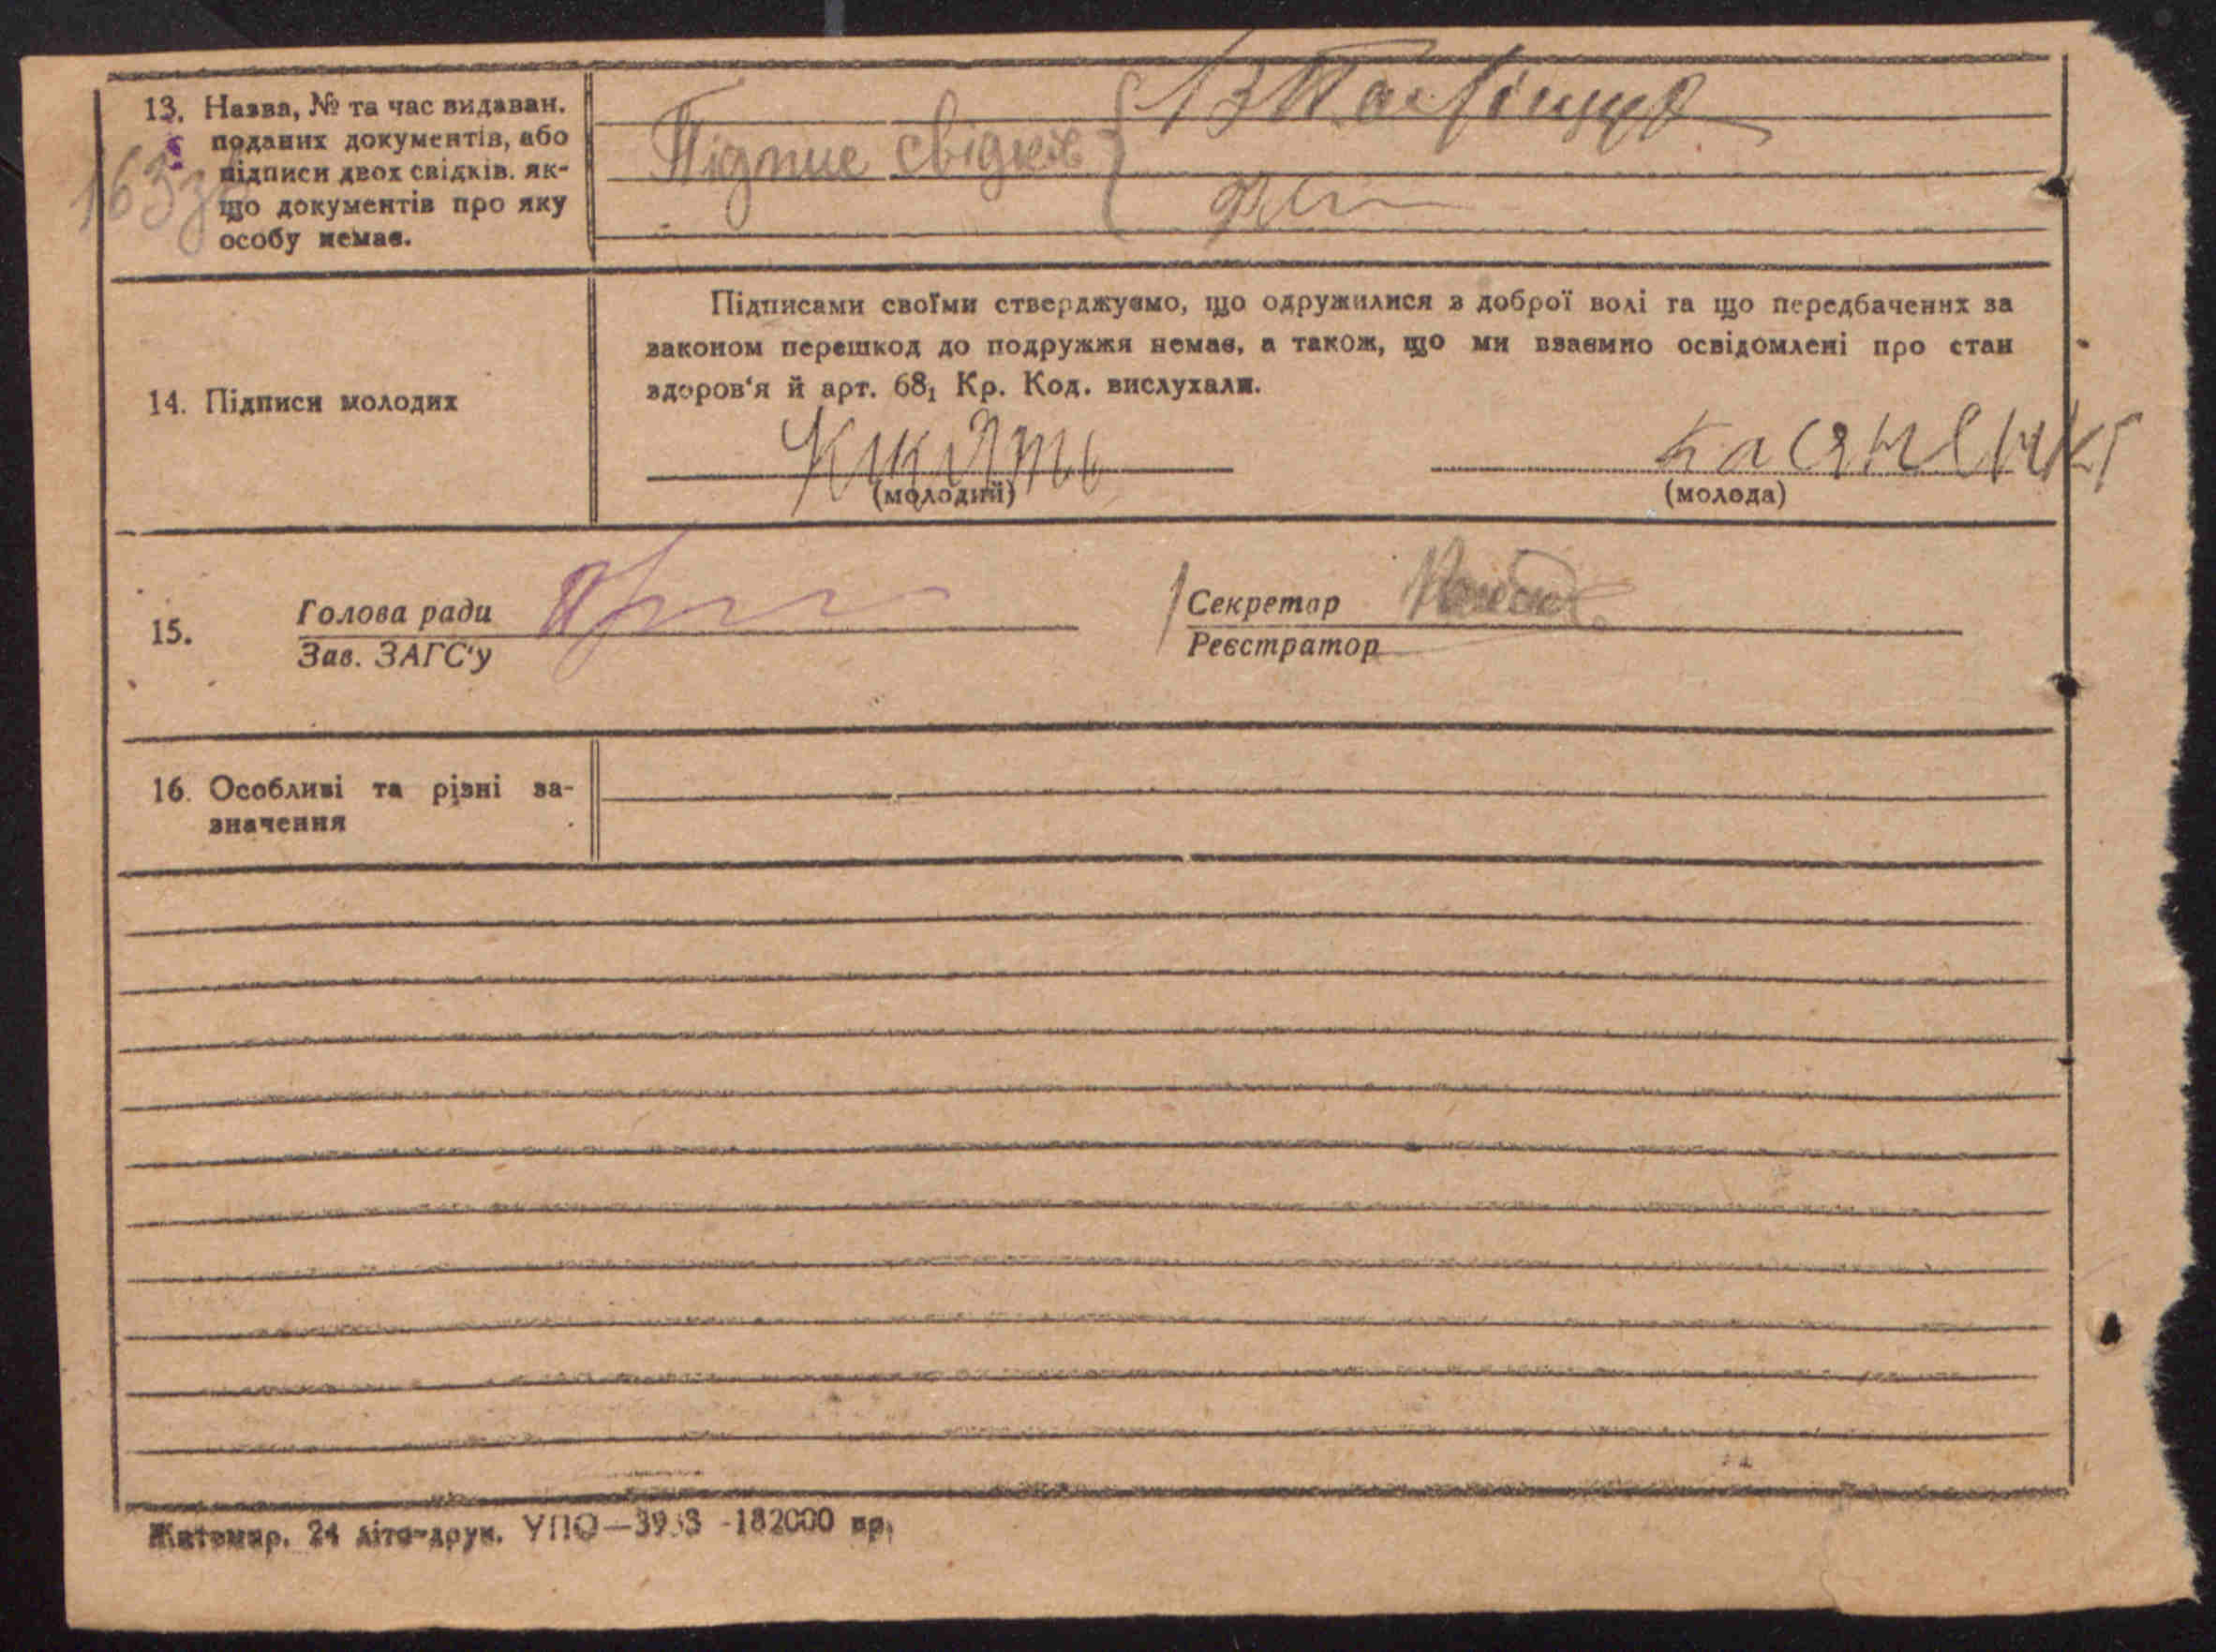 13. Назва, № та час видаван.
поданих документів, або
підписи двох свідків. як-
що документів про яку
особу немає.
Підпис свідків
14. Підписи молодих
Підписами своїми стверджуємо, що одружилися з доброї волі та що передбачених за
законом перешкод до подружжя немає, а також, що ми взаємно освідомлені про стан
здоров'я й арт. 68₁ Кр. Код. вислухали.
(молодий)
(молода)
15.
Голова ради
Зав. ЗАГС'у
Секретар
Реєстратор
16. Особливі та різні за-
значення
Житомир. 24 літо-друк. УПО— -182000 пр.